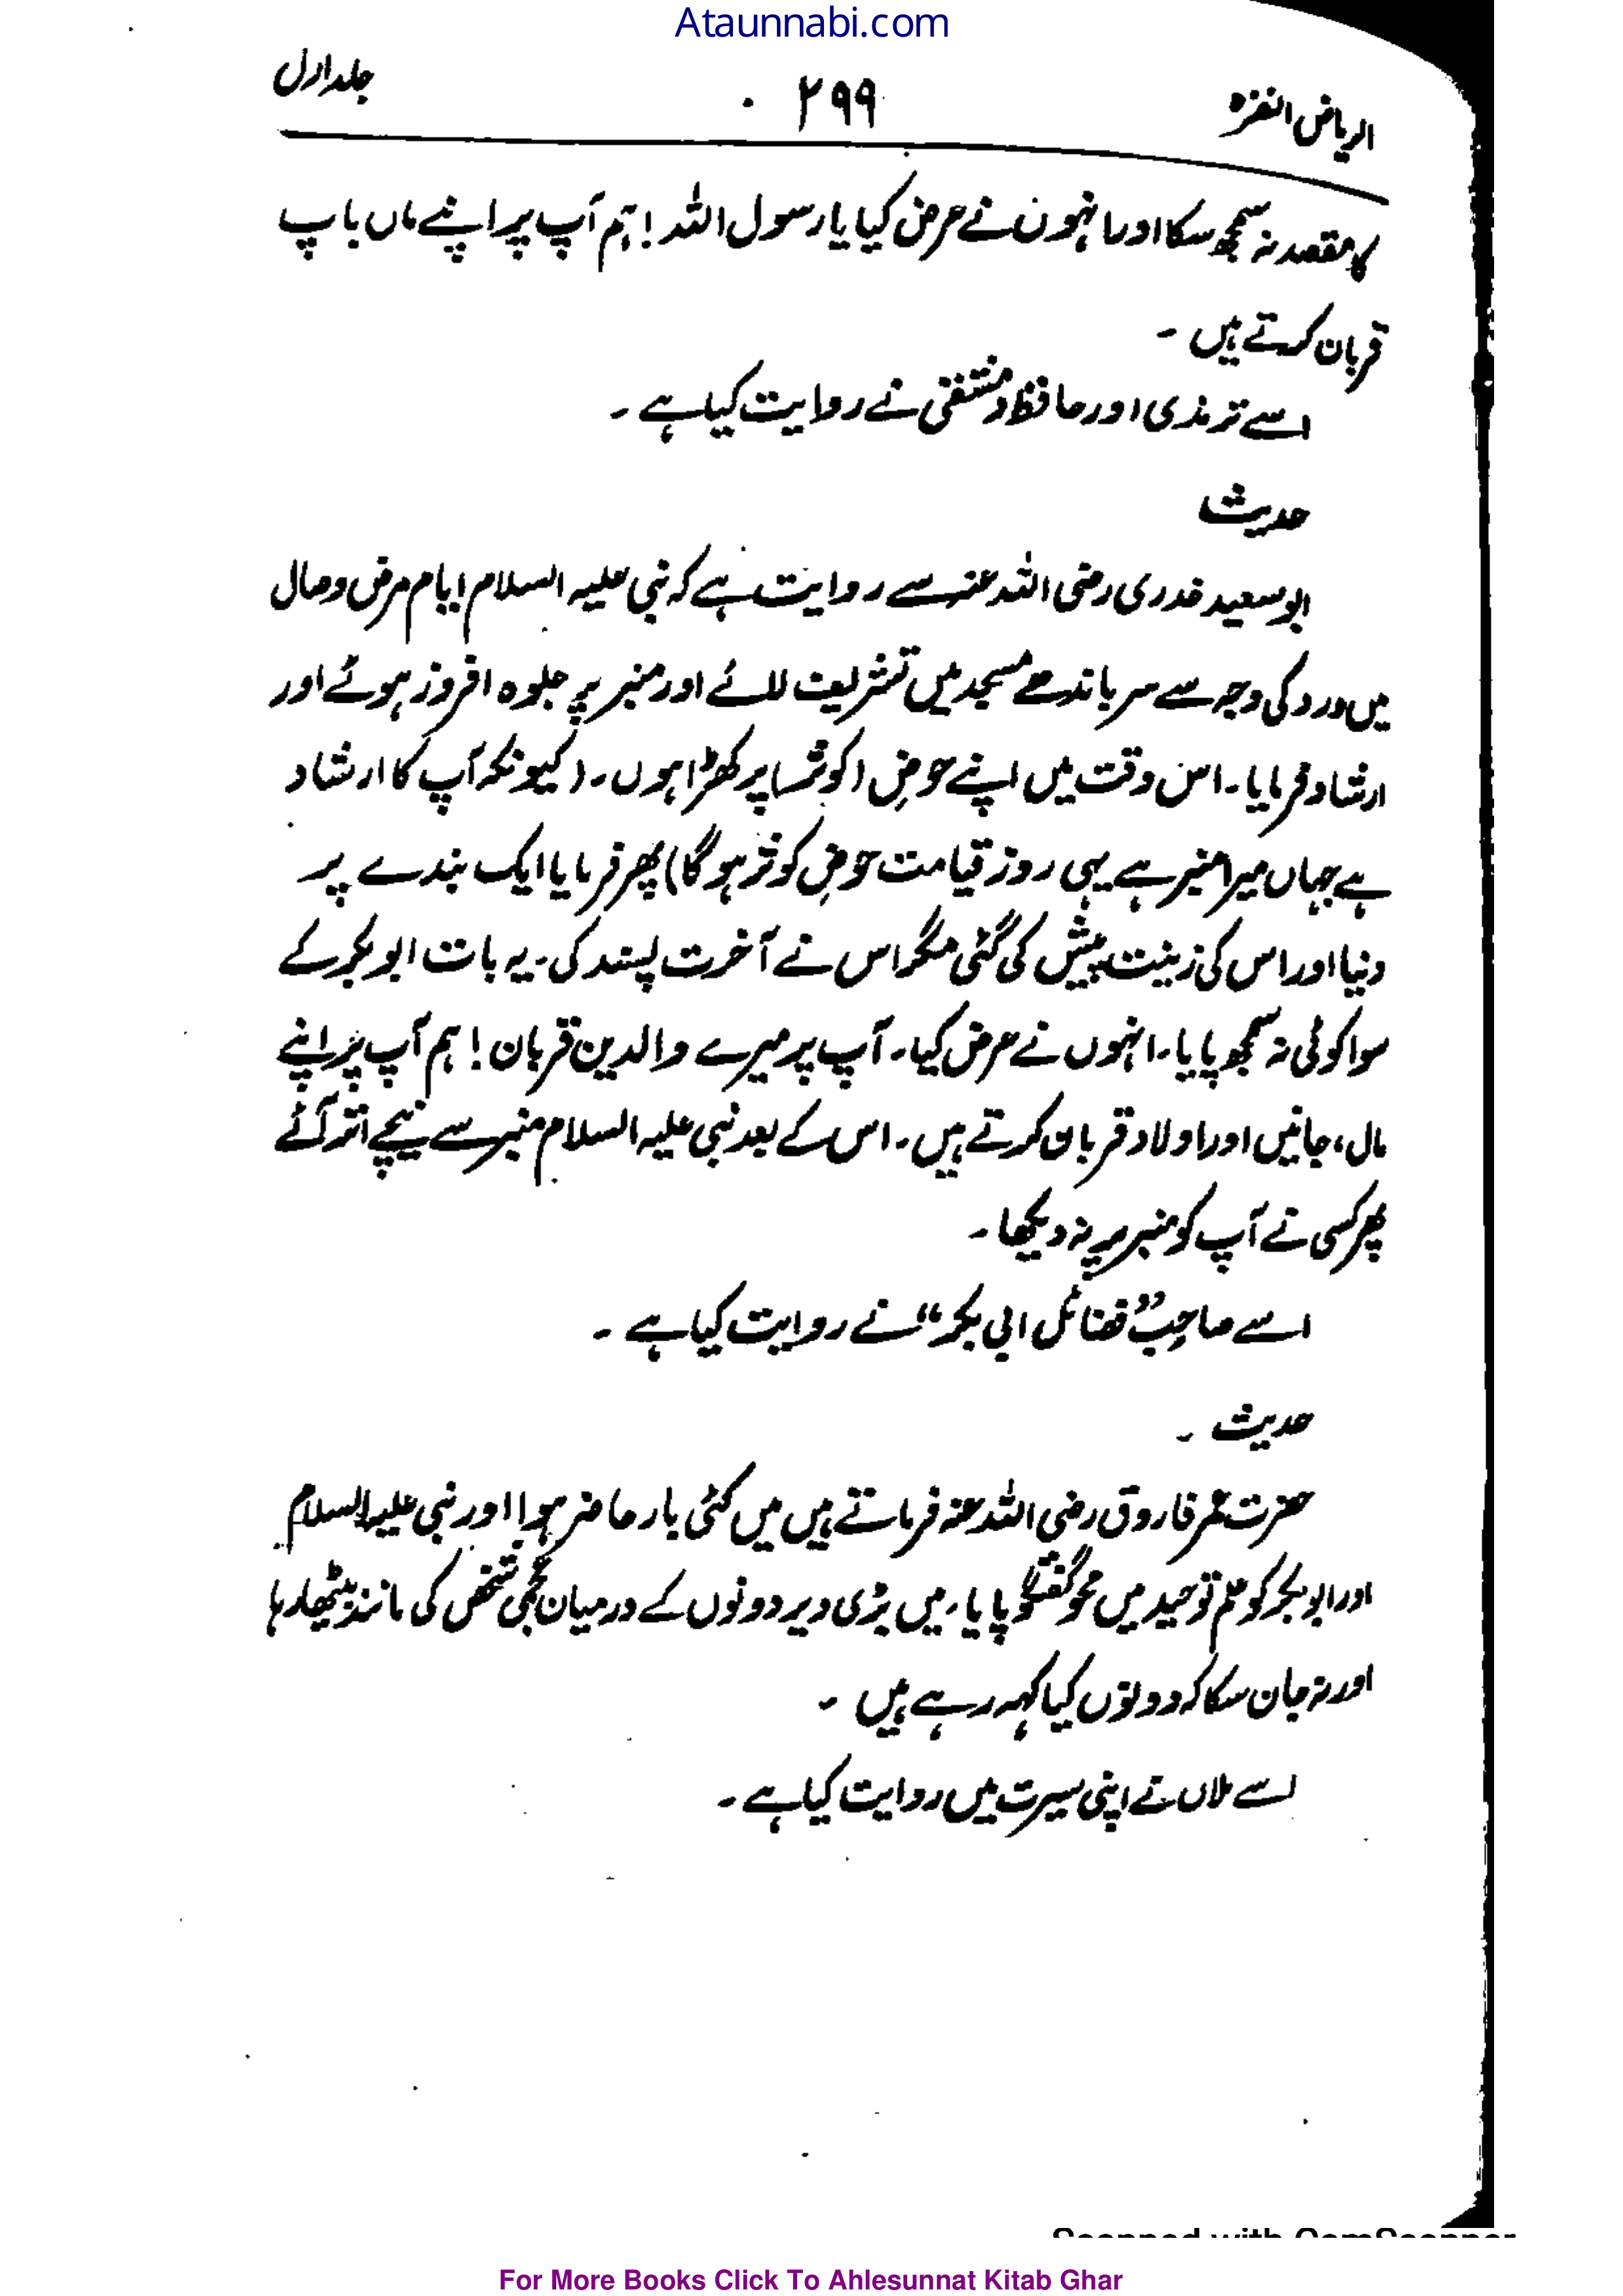 Ataunnabi.com
الریاض النضرہ ۲۹۹ جلد اول
کا مقصد نہ سمجھ سکا اور انہوں نے عرض کیا یا رسول اللہ! ہم آپ پر اپنے ماں باپ
قربان کرتے ہیں ۔
اسے ترمذی اور حافظ دمشقی نے روایت کیا ہے ۔
حدیث
ابو سعید خدری رضی اللہ عنہ سے روایت ہے کہ نبی علیہ السلام ایام مرض وصال
میں درد کی وجہ سے سر باندھے مسجد میں تشریف لائے اور منبر پر جلوہ افروز ہوئے اور
ارشاد فرمایا ۔ اس وقت میں اپنے حوضِ (کوثر) پر کھڑا ہوں ۔ (کیونکہ آپ کا ارشاد
ہے جہاں میرا منبر ہے یہی روز قیامت حوضِ کوثر ہو گا) پھر فرمایا ایک بندے پر
دنیا اور اس کی زینت پیش کی گئی مگر اس نے آخرت پسند کی ۔ یہ بات ابوبکر کے
سوا کوئی نہ سمجھ پایا ۔ انہوں نے عرض کیا ۔ آپ پر میرے والدین قربان! ہم آپ پر اپنے
مال، جانیں اور اولاد قربان کرتے ہیں ۔ اس کے بعد نبی علیہ السلام منبر سے نیچے اتر آئے
پھر کسی نے آپ کو منبر پر نہ دیکھا ۔
اسے صاحبِ ”فضائل ابی بکر“ نے روایت کیا ہے ۔
حدیث ۔
حضرت عمر فاروق رضی اللہ عنہ فرماتے ہیں میں کئی بار حاضر ہوا اور نبی علیہ السلام
اور ابوبکر کو علم توحید میں محو گفتگو پایا، میں بڑی دیر دونوں کے درمیان عجمی شخص کی مانند بیٹھا رہا
اور نہ جان سکا کہ دونوں کیا کہہ رہے ہیں ۔
اسے ملاں نے اپنی سیرت میں روایت کیا ہے ۔
Scanned with CamScanner
For More Books Click To Ahlesunnat Kitab Ghar